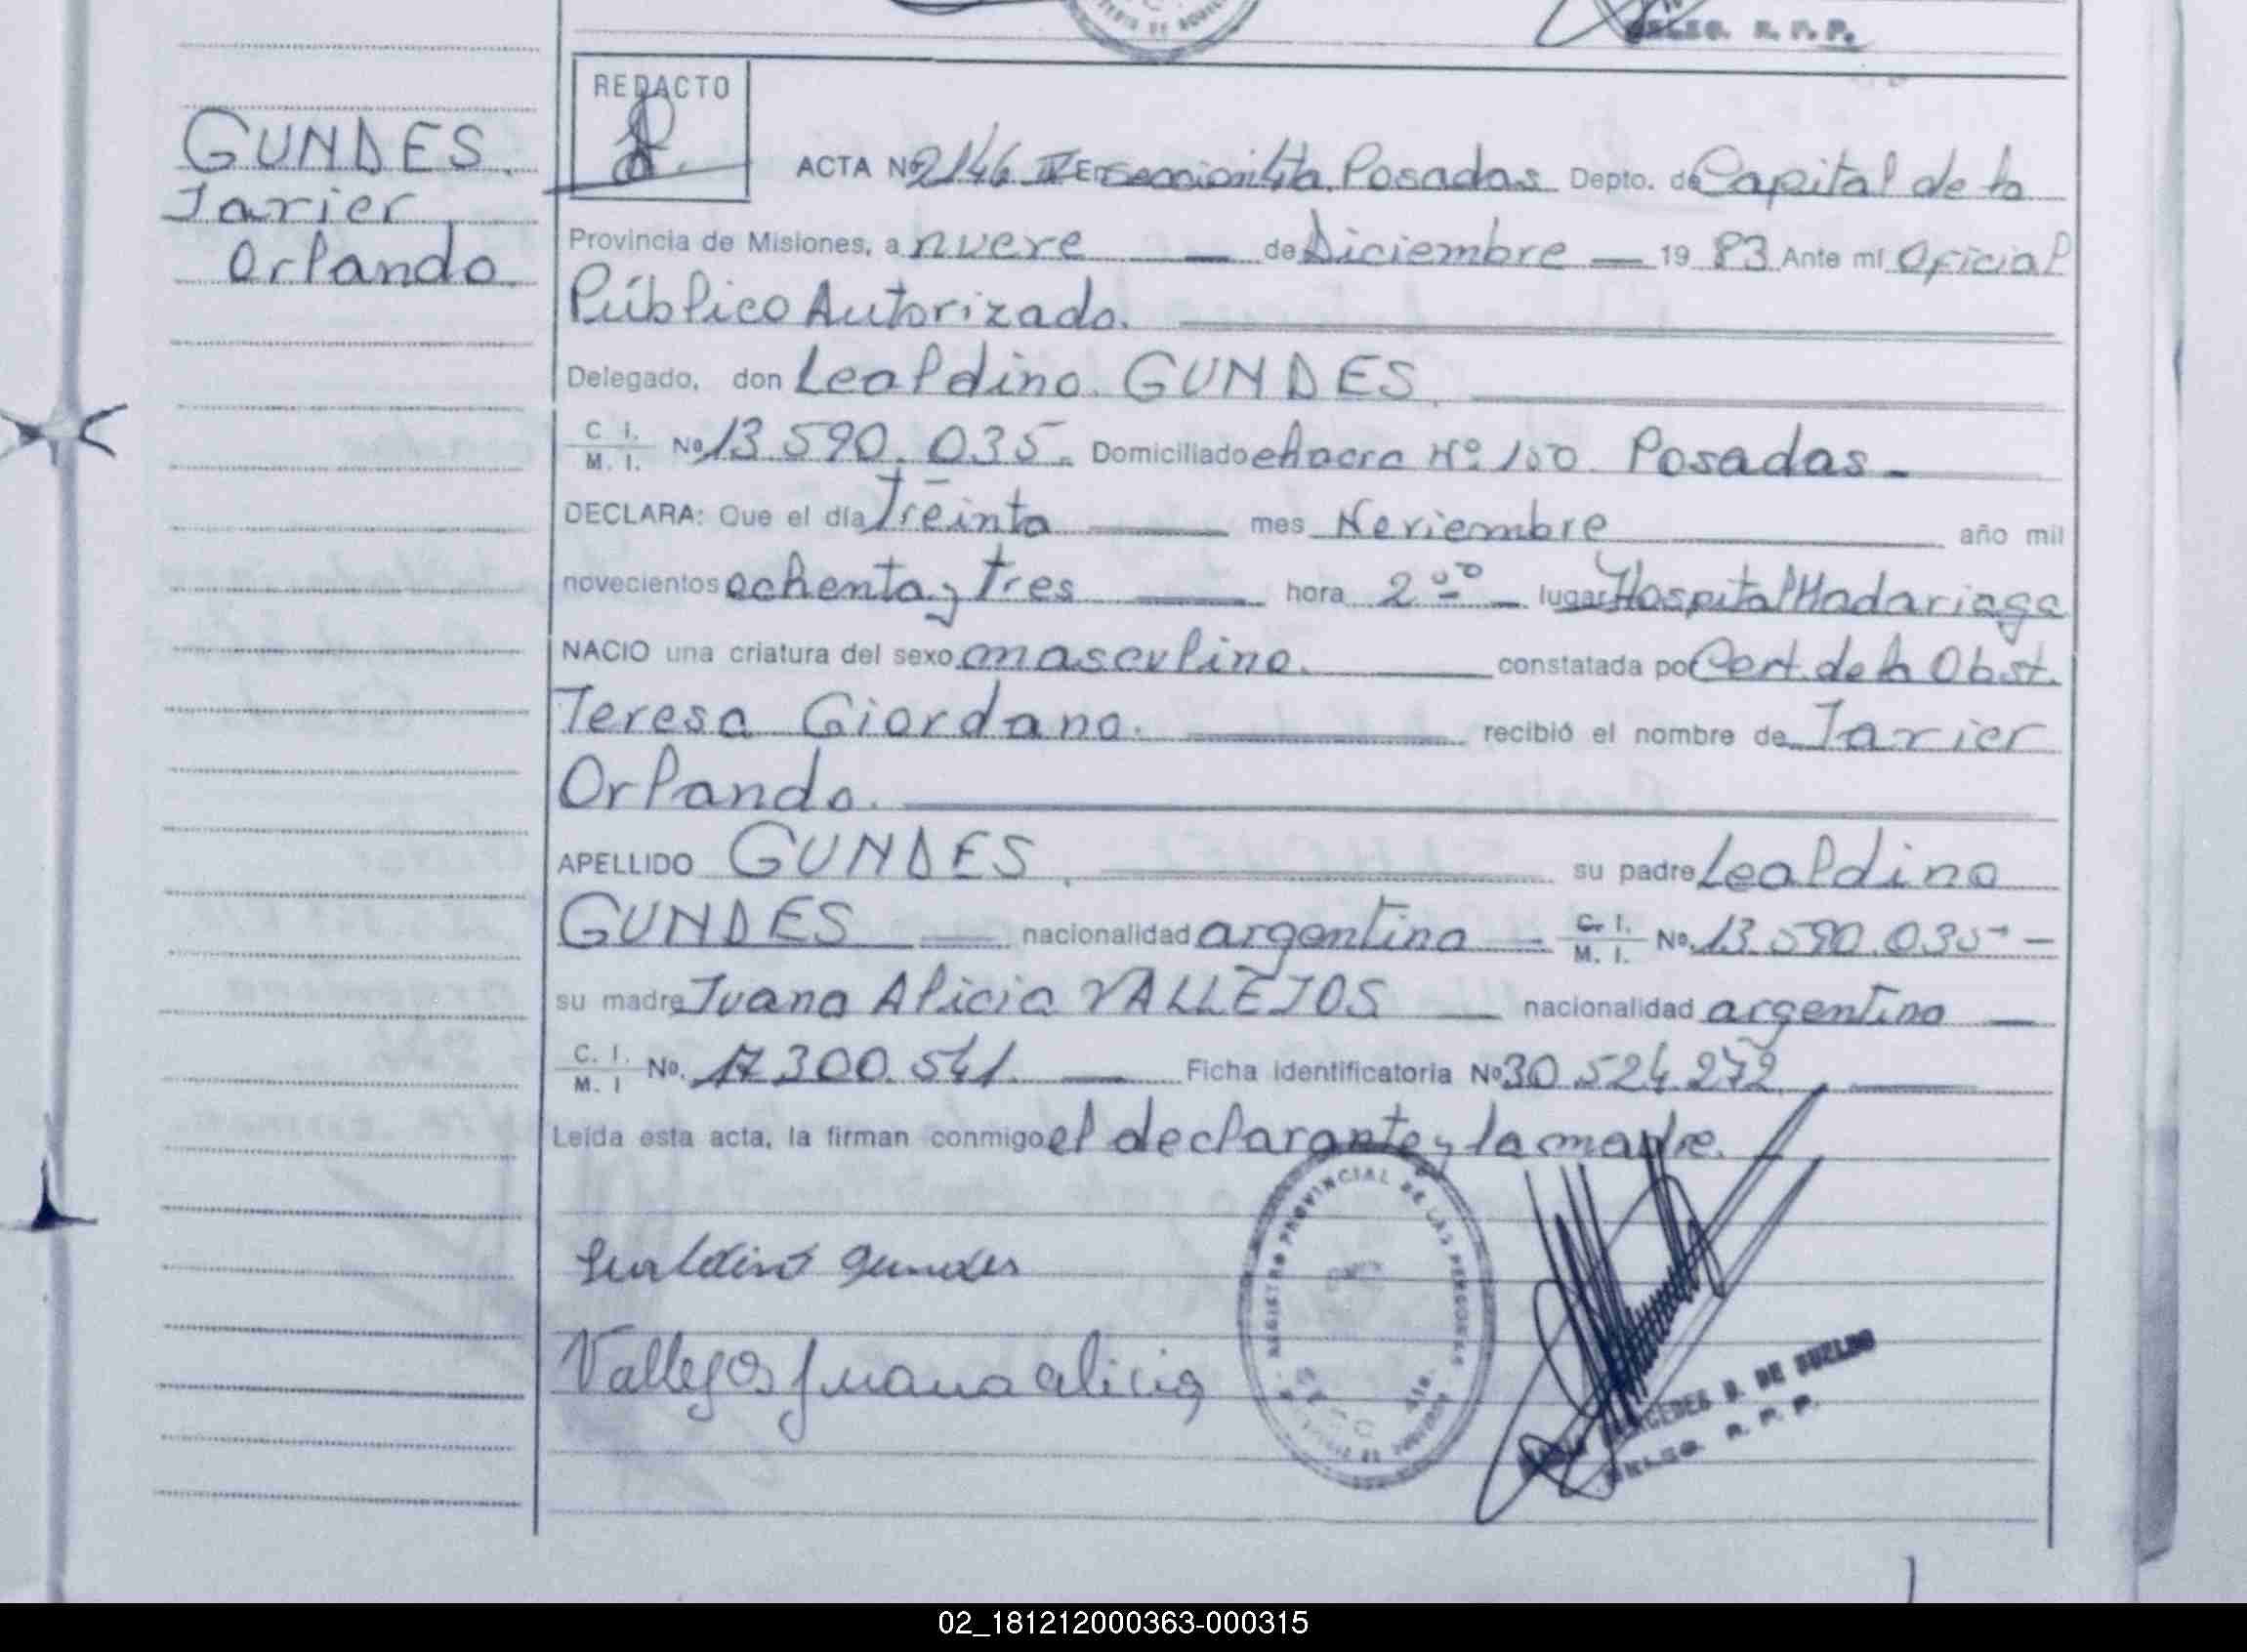 DELEG. R. P. P.
REDACTO
GUNDES.
Javier
Orlando.
ACTA Nº 2146 IV En seccion 4ta. Posadas Depto. de Capital de la
Provincia de Misiones, a nueve — de Diciembre — 19 83 Ante mí Oficial
Público Autorizado.
Delegado, don Lealdino GUNDES.
C. I. M. I. Nº 13.590.035. Domiciliado chacra Nº 100. Posadas -
DECLARA: Que el día Treinta mes Noviembre año mil
novecientos ochenta y tres hora 2 00 lugar Hospital Madariaga
NACIO una criatura del sexo masculino. constatada por Cert. de la Obst.
Teresa Giordano. recibió el nombre de Javier
Orlando.
APELLIDO GUNDES. su padre Lealdino
GUNDES nacionalidad argentina C. I. M. I. Nº. 13.590.035 -
su madre Juana Alicia VALLEJOS nacionalidad argentina
C. I. M. I Nº. 17.300.541. Ficha identificatoria Nº 30.524.272.
Leída esta acta, la firman conmigo el declarante y la madre.
REGISTRO PROVINCIAL DE LAS PERSONAS
gundes
Vallejos Juana alicia
MERCEDES D. DE SUELDO
DELEG. R. P. P.
02_181212000363-000315